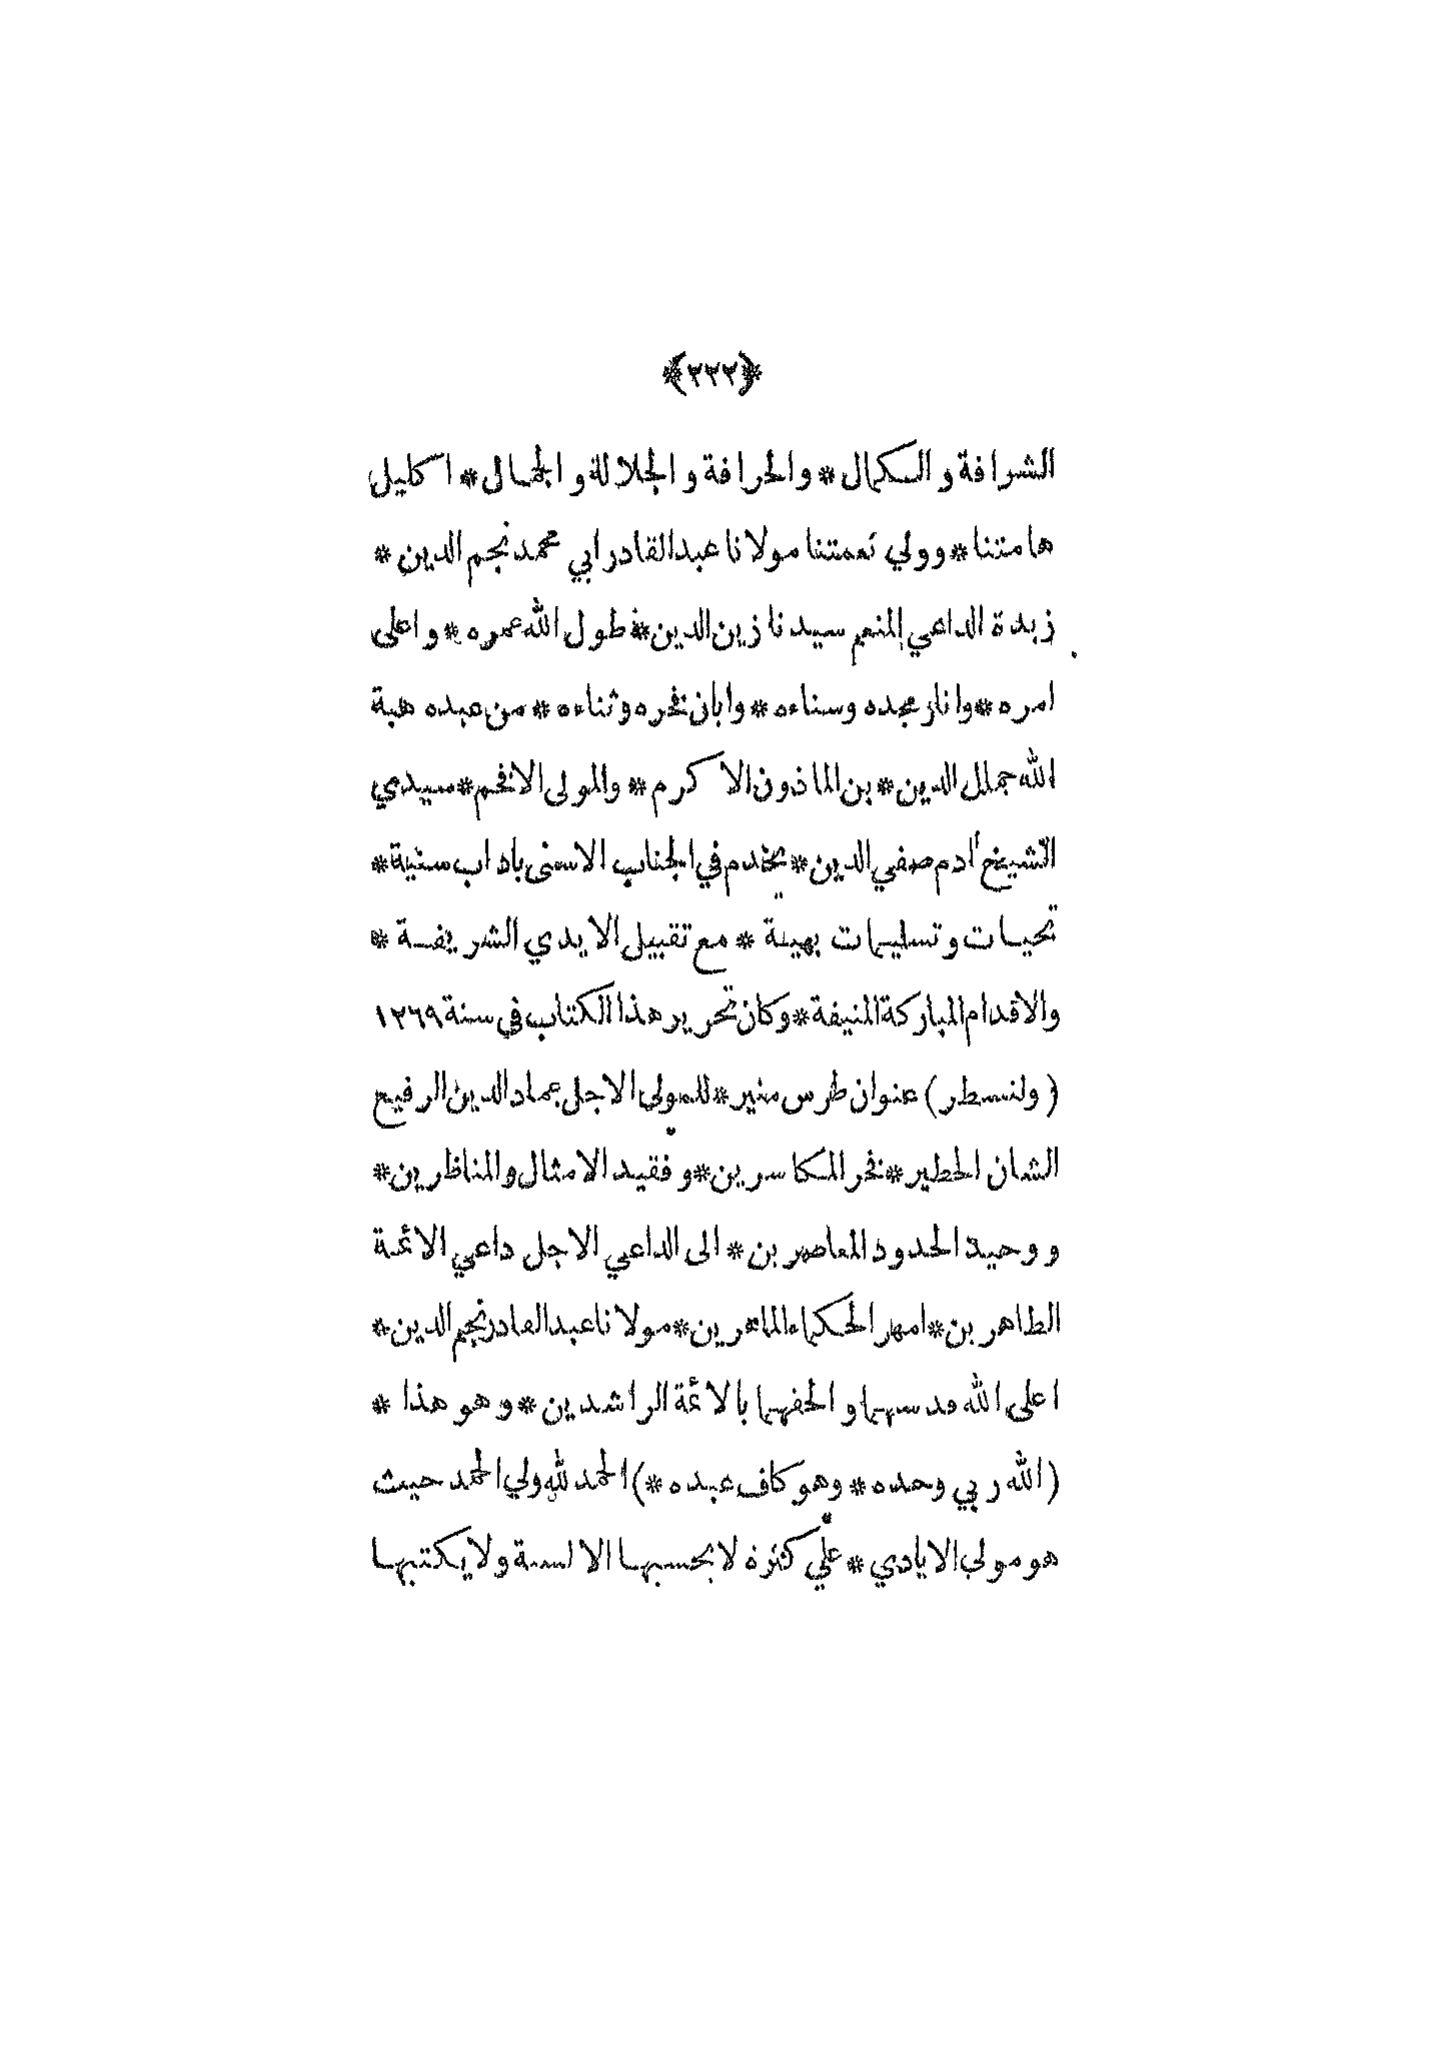 ﴿٢٣٢﴾
الشرافة والكمال * والحرافة والجلالة والجمال * اكليل
هامتنا * وولي نعمتنا مولانا عبدالقادر ابي محمد نجم الدين *
زبدة الداعي المنعم سيدنا زين الدين * طول الله عمره * واعلى
امره * وانار مجده وسناءه * وابان فخره وثناءه * من عبده هبة
الله جمال الدين * بن الماذون الاكرم * والمولى الافخم * سيدي
الشيخ آدم صفي الدين * يخدم في الجناب الاسنى باداب سنية *
تحيات وتسليمات بهية * مع تقبيل الايدي الشريفة *
والاقدام المباركة المنيفة * وكان تحرير هذا الكتاب في سنة ١٢٦٩
(ولنسطر) عنوان طرس منير * للمولى الاجل عماد الدين الرفيع
الشان الخطير * فخر المكاسرين * وفقيد الامثال والمناظرين *
ووحيد الحدود المعاصرين * الى الداعي الاجل داعي الائمة
الطاهرين * امهر الحكماء الماهرين * مولانا عبدالقادر نجم الدين *
اعلى الله قدسهما والحفهما بالائمة الراشدين * وهو هذا *
(الله ربي وحده * وهو كاف عبده *) الحمد لله ولي الحمد حيث
هو مولى الايادي * على كثرة لا يحسبها الالسنة ولا يكتبها